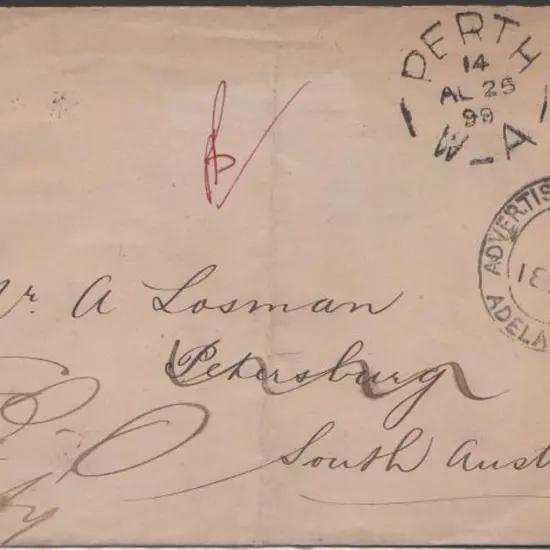 PERTH
14
AL 25
99
W-A
ADVERTIS
18
ADELA
Mr. A Losman
Petersburg
South Aust